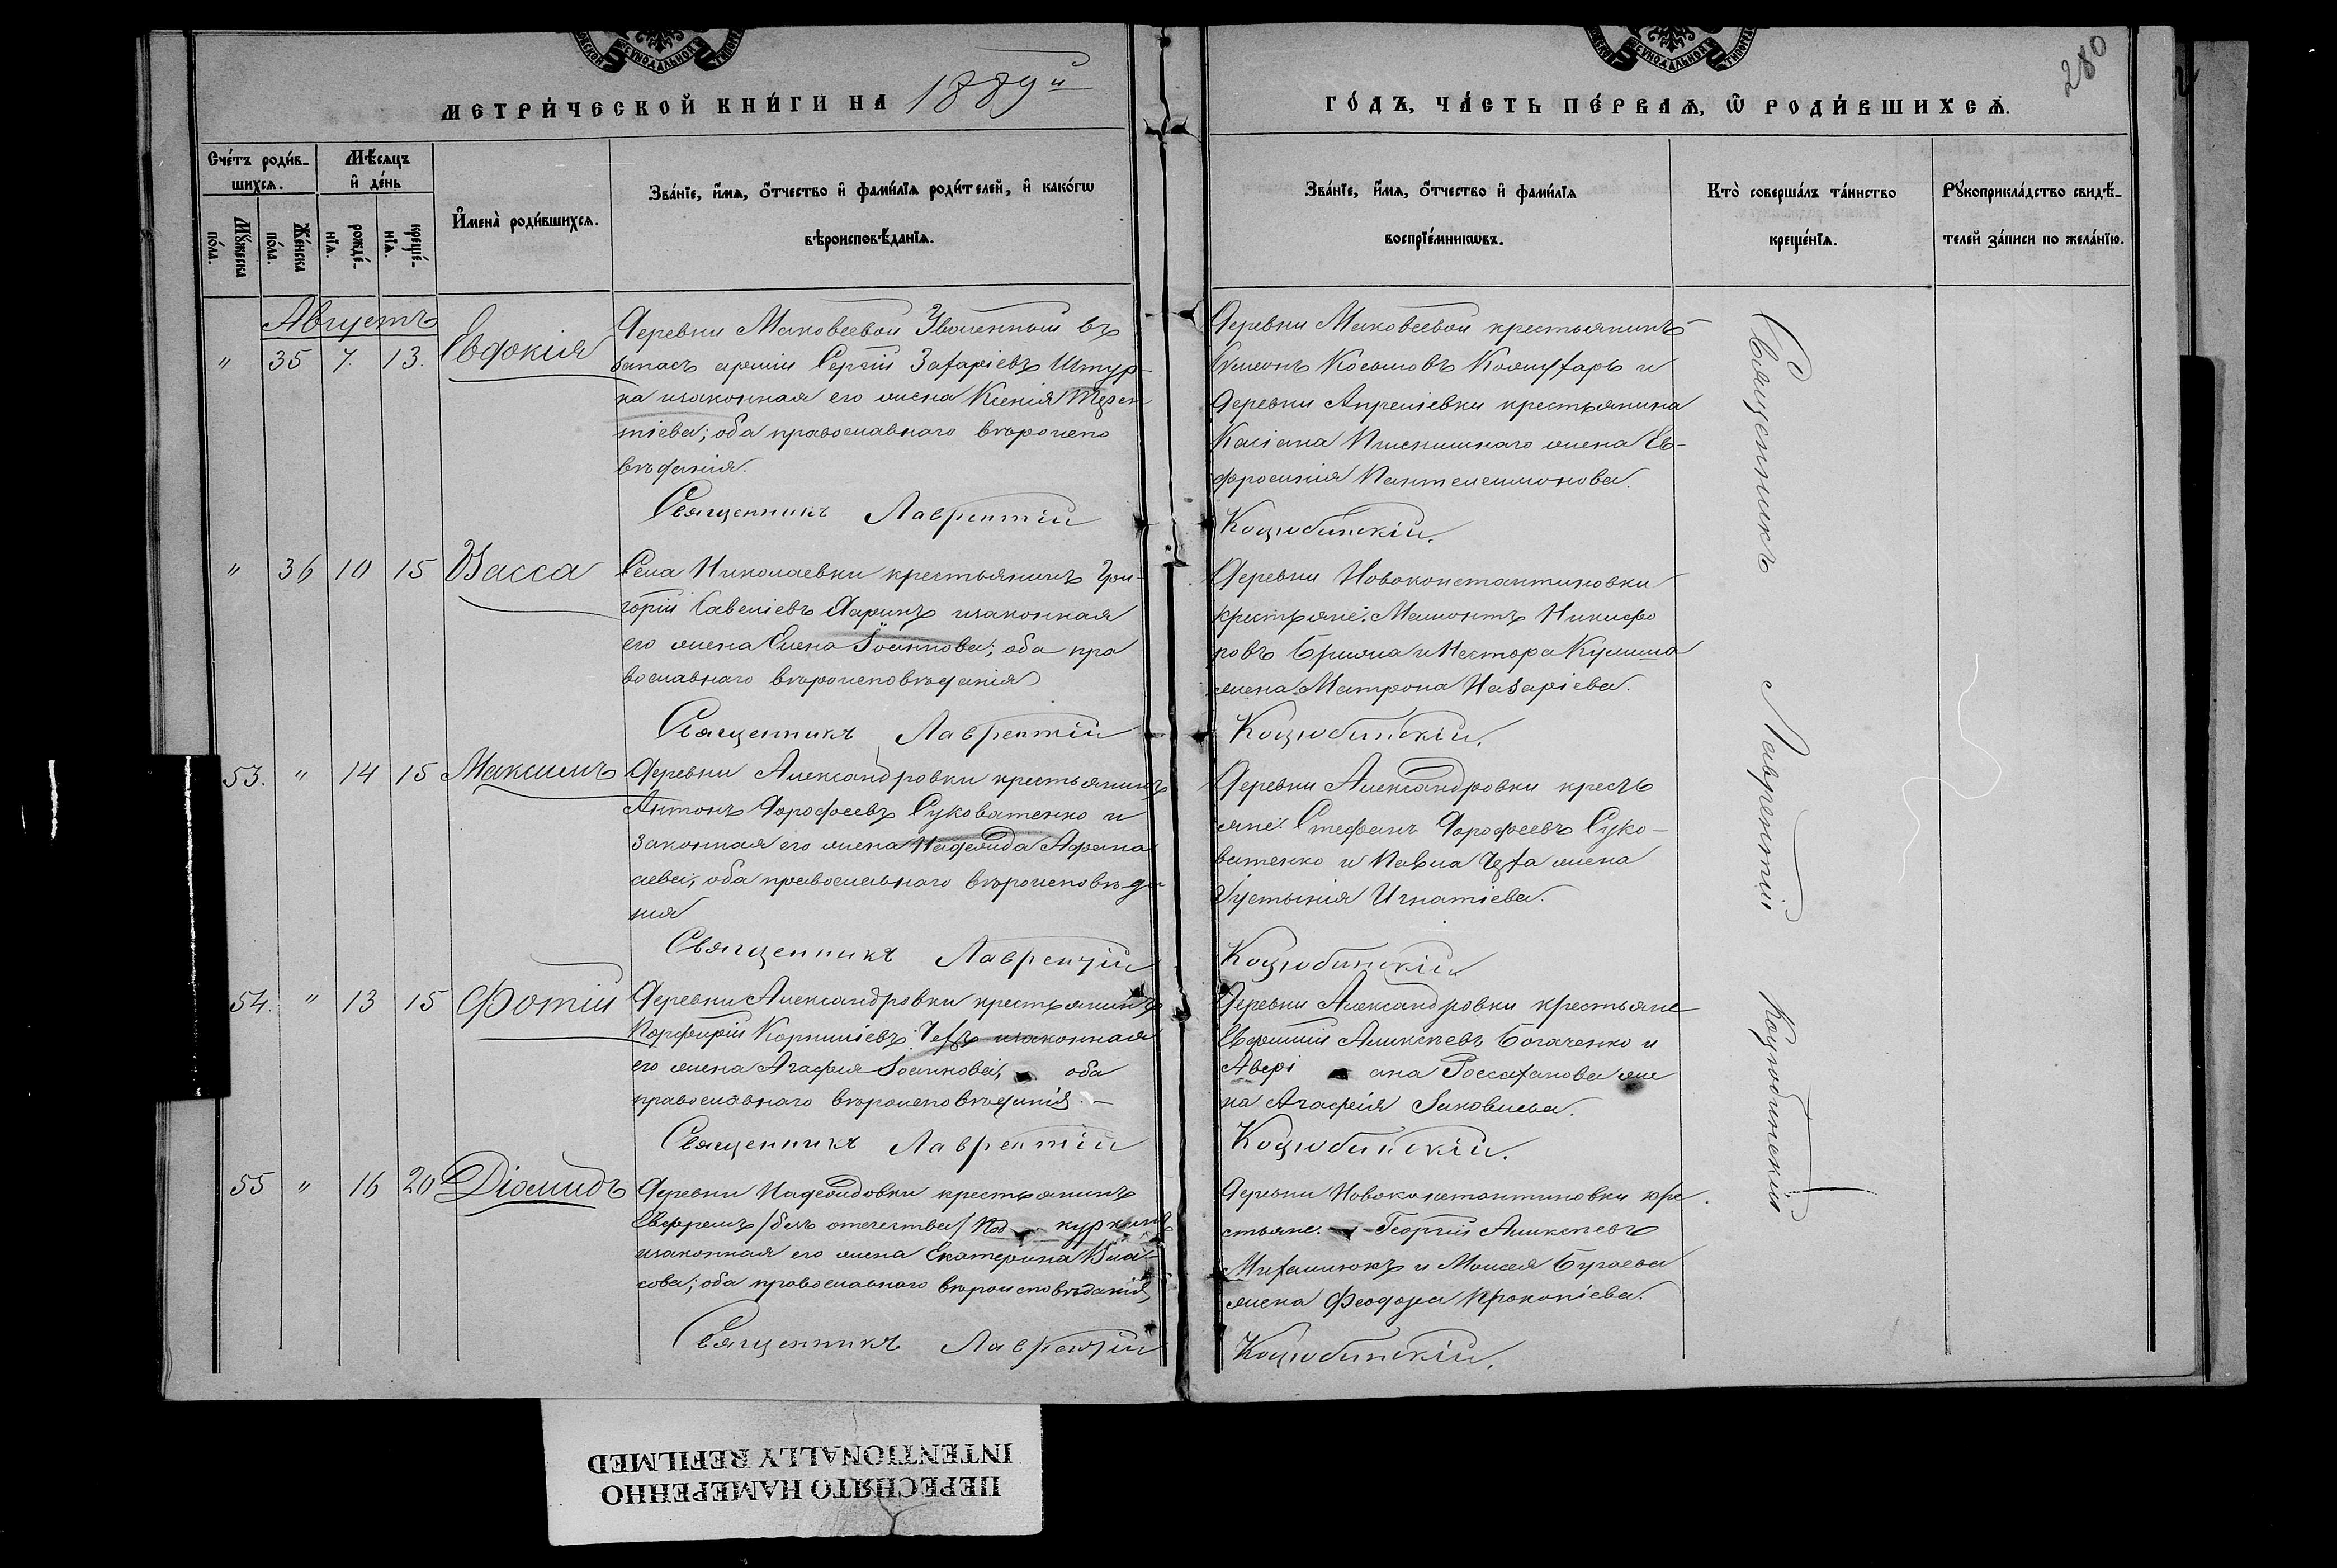 280
МЕТРИ́ЧЕСКОЙ КНИ́ГИ НА 1889й
ГО́ДЪ, ЧА́СТЬ ПЕ́РВАѦ, Ѿ РОДИ́ВШИХСѦ.
Сче́тъ роди́в-
шихсѧ.
Мѣ́сѧцъ
и҆ де́нь
И҆мена̀ роди́вшихсѧ.
Зва́нїе, и҆́мѧ, ѻ҆́тчество и҆ фами́лїѧ роди́телей, и҆ како́гѡ
вѣроисповѣ́данїѧ.
Мꙋ́жеска
по́ла.
Же́нска
по́ла.
рожде́-
нїѧ.
креще́-
нїѧ.
Зва́нїе, и҆́мѧ, ѻ҆́тчество и҆ фами́лїѧ
воспрїе́мникѡвъ.
Кто̀ соверша́лъ та́инство
креще́нїѧ.
Рꙋкоприкла́дство свидѣ́-
телей за́писи по жела́нїю.
Августъ
" 35 7. 13. Евдокія
Деревни Маковеевой Уволенный въ
запасъ арміи Сергій Захаріевъ Штур-
ка изаконная его жена Ксенія
тіева; оба православнаго вѣроиспо
вѣданія.
Священникъ Лаврентій
Деревни Маковеевой крестьянинъ
Симеонъ Косьмовъ и
Деревни крестьянина
Касіана жена Ев-
фросинія Пантелеимонова.
Коцюбинскій.
" 36 10 15 Васса
Села Николаевки крестьянинъ Гри-
горій Савеліевъ изаконная
его жена Елена Іоаннова; оба пра
вославнаго вѣроисповѣданія
Священникъ Лаврентій
Деревни Новоконстантиновки
крестьяне: Мамонтъ Никифо
ровъ и Нестора
жена Матрона Назаріева.
Коцюбинскій.
53. " 14 15 Максимъ
Деревни Александровки крестьянинъ
Антонъ Дорофеевъ Суковатенко и
законная его жена Надежда Афана
сіева; оба православнаго вѣроисповѣда
нія
Священникъ Лаврентій
Деревни Александровки кресть
яне: Стефанъ Дорофеевъ Суко-
ватенко и Павла Чеха жена
Іустинія Игнатіева.
Коцюбинскій
54. " 13 15 Фотій
Деревни Александровки крестьянинъ
Порфирій Корниліевъ Чехъ изаконная
его жена Агафія Іоаннова; оба
православнаго вѣроисповѣданія.
Священникъ Лаврентій
Деревни Александровки крестьяне
Евфимій Алексѣевъ Богаченко и
Авері ана Россаханова же
на Агафія Іаковлева.
Коцюбинскій.
55 " 16 20 Діомидъ
Деревни Надеждовки крестьянинъ
Евфремъ /безъ отечества/ Под куркинъ
изаконная его жена Екатерина Вла-
сова; оба православнаго вѣроисповѣданія,
Священникъ Лаврентій
Деревни Новоконстантиновки кре
стьяне: Георгій Алексѣевъ
Михалюкъ и Моисея Бугаева
жена Феодора Прокопіева.
Коцюбинскій.
Священникъ Лаврентій Коцюбинскій
ПЕРЕСНЯТО НАМЕРЕННО
INTENTIONALLY REFILMED